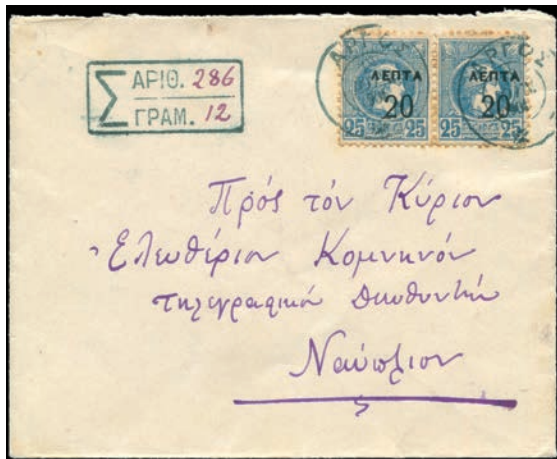 Σ ΑΡΙΘ. 286
ΓΡΑΜ. 12
ΑΡΓΟΣ ΑΡΓΟΣ
ΛΕΠΤΑ ΛΕΠΤΑ
20 20
25 25 25 25
Πρός τόν Κύριον
Ελευθέριον Κομνηνόν
τηλεγραφικόν Διευθυντήν
Ναύπλιον